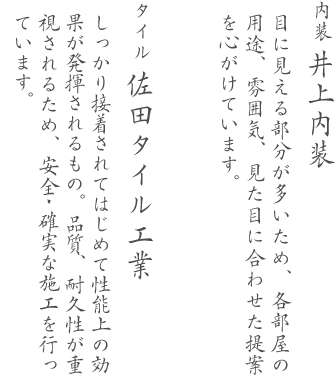 内装 井上内装
目に見える部分が多いため、各部屋の
用途、雰囲気、見た目に合わせた提案
を心がけています。
タイル 佐田タイル工業
しっかり接着されてはじめて性能上の効
果が発揮されるもの。品質、耐久性が重
視されるため、安全・確実な施工を行っ
ています。